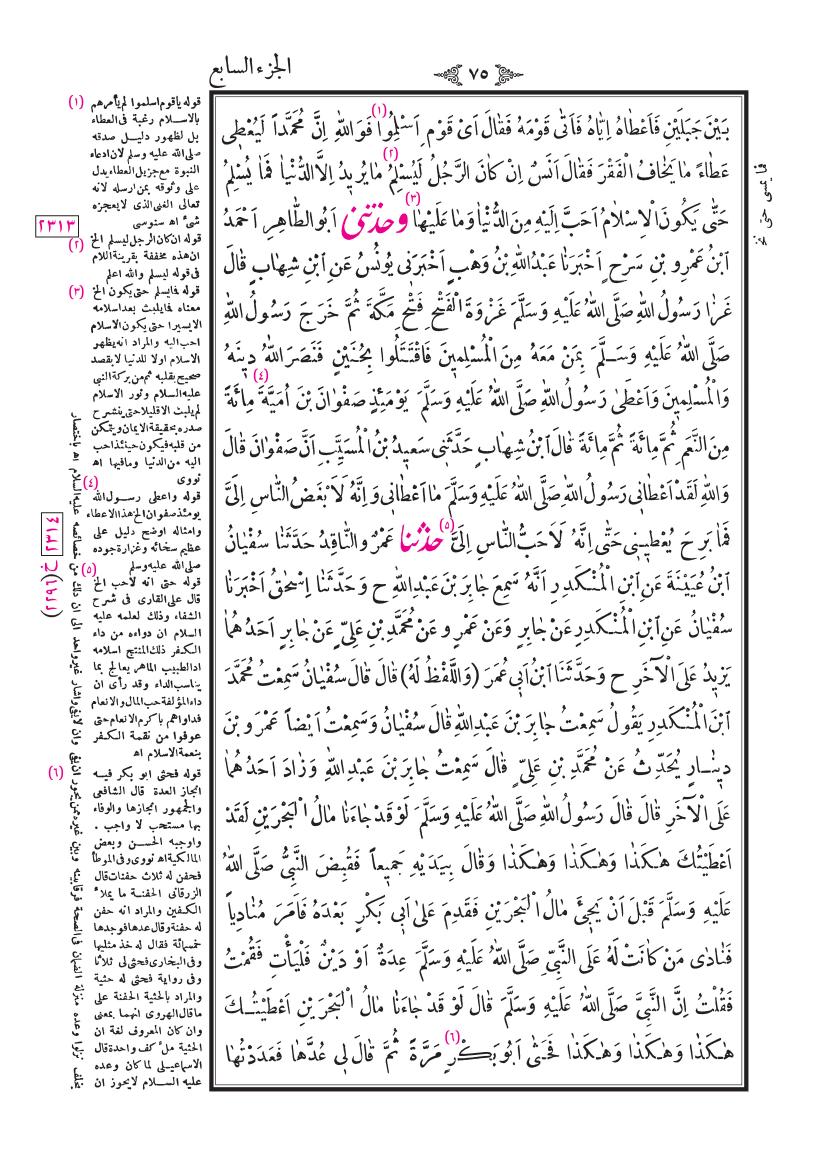 الجزء السابع
٧٥
بَيْنَ جَبَلَيْنِ فَاَعْطَاهُ اِيَّاهُ فَاَتٰى قَوْمَهُ فَقَالَ اَىْ قَوْمِ اَسْلِمُوا (١) فَوَاللّٰهِ اِنَّ مُحَمَّداً لَيُعْطِى
عَطَاءً مَا يَخَافُ الْفَقْرَ فَقَالَ اَنَسٌ اِنْ كَانَ الرَّجُلُ لَيُسْلِمُ (٢) مَا يُرِيدُ اِلَّا الدُّنْيَا فَمَا يُسْلِمُ
حَتّٰى يَكُونَ الْاِسْلَامُ اَحَبَّ اِلَيْهِ مِنَ الدُّنْيَا وَمَا عَلَيْهَا (٣) وحدثنى اَبُو الطَّاهِرِ اَحْمَدُ
ابْنُ عَمْرِو بْنِ سَرْحٍ اَخْبَرَنَا عَبْدُ اللّٰهِ بْنُ وَهْبٍ اَخْبَرَنِى يُونُسُ عَنِ ابْنِ شِهَابٍ قَالَ
غَزَا رَسُولُ اللّٰهِ صَلَّى اللّٰهُ عَلَيْهِ وَسَلَّمَ غَزْوَةَ الْفَتْحِ فَتْحِ مَكَّةَ ثُمَّ خَرَجَ رَسُولُ اللّٰهِ
صَلَّى اللّٰهُ عَلَيْهِ وَسَلَّمَ بِمَنْ مَعَهُ مِنَ الْمُسْلِمِينَ فَاقْتَتَلُوا بِحُنَيْنٍ فَنَصَرَ اللّٰهُ دِينَهُ
وَالْمُسْلِمِينَ وَاَعْطٰى رَسُولُ اللّٰهِ صَلَّى اللّٰهُ عَلَيْهِ وَسَلَّمَ يَوْمَئِذٍ (٤) صَفْوَانَ بْنَ اُمَيَّةَ مِائَةً
مِنَ النَّعَمِ ثُمَّ مِائَةً ثُمَّ مِائَةً قَالَ ابْنُ شِهَابٍ حَدَّثَنِى سَعِيدُ بْنُ الْمُسَيَّبِ اَنَّ صَفْوَانَ قَالَ
وَاللّٰهِ لَقَدْ اَعْطَانِى رَسُولُ اللّٰهِ صَلَّى اللّٰهُ عَلَيْهِ وَسَلَّمَ مَا اَعْطَانِى وَاِنَّهُ لَاَبْغَضُ النَّاسِ اِلَىَّ
فَمَا بَرِحَ يُعْطِينِى حَتّٰى اِنَّهُ لَاَحَبُّ النَّاسِ اِلَىَّ (٥) حدثنا عَمْرٌو النَّاقِدُ حَدَّثَنَا سُفْيَانُ
ابْنُ عُيَيْنَةَ عَنِ ابْنِ الْمُنْكَدِرِ اَنَّهُ سَمِعَ جَابِرَ بْنَ عَبْدِ اللّٰهِ ح وَحَدَّثَنَا اِسْحٰقُ اَخْبَرَنَا
سُفْيَانُ عَنِ ابْنِ الْمُنْكَدِرِ عَنْ جَابِرٍ وَعَنْ عَمْرٍو عَنْ مُحَمَّدِ بْنِ عَلِىٍّ عَنْ جَابِرٍ اَحَدُهُمَا
يَزِيدُ عَلَى الْآخَرِ ح وَحَدَّثَنَا ابْنُ اَبِى عُمَرَ (وَاللَّفْظُ لَهُ) قَالَ قَالَ سُفْيَانُ سَمِعْتُ مُحَمَّدَ
ابْنَ الْمُنْكَدِرِ يَقُولُ سَمِعْتُ جَابِرَ بْنَ عَبْدِ اللّٰهِ قَالَ سُفْيَانُ وَسَمِعْتُ اَيْضاً عَمْرَو بْنَ
دِينَارٍ يُحَدِّثُ عَنْ مُحَمَّدِ بْنِ عَلِىٍّ قَالَ سَمِعْتُ جَابِرَ بْنَ عَبْدِ اللّٰهِ وَزَادَ اَحَدُهُمَا
عَلَى الْآخَرِ قَالَ قَالَ رَسُولُ اللّٰهِ صَلَّى اللّٰهُ عَلَيْهِ وَسَلَّمَ لَوْ قَدْ جَاءَنَا مَالُ الْبَحْرَيْنِ لَقَدْ
اَعْطَيْتُكَ هٰكَذَا وَهٰكَذَا وَهٰكَذَا وَقَالَ بِيَدَيْهِ جَمِيعاً فَقُبِضَ النَّبِىُّ صَلَّى اللّٰهُ
عَلَيْهِ وَسَلَّمَ قَبْلَ اَنْ يَجِىَٔ مَالُ الْبَحْرَيْنِ فَقَدِمَ عَلٰى اَبِى بَكْرٍ بَعْدَهُ فَاَمَرَ مُنَادِياً
فَنَادٰى مَنْ كَانَتْ لَهُ عَلَى النَّبِىِّ صَلَّى اللّٰهُ عَلَيْهِ وَسَلَّمَ عِدَةٌ اَوْ دَيْنٌ فَلْيَأْتِ فَقُمْتُ
فَقُلْتُ اِنَّ النَّبِىَّ صَلَّى اللّٰهُ عَلَيْهِ وَسَلَّمَ قَالَ لَوْ قَدْ جَاءَنَا مَالُ الْبَحْرَيْنِ اَعْطَيْتُكَ
هٰكَذَا وَهٰكَذَا وَهٰكَذَا فَحَثٰى اَبُو بَكْرٍ (٦) مَرَّةً ثُمَّ قَالَ لِى عُدَّهَا فَعَدَدْتُهَا
فما يمسى حتى نخ
(١) قوله ياقوم اسلموا لم يأمرهم
بالاسلام رغبة فى العطاء
بل لظهور دليل صدقه
صلى الله عليه وسلم لان ادعاء
النبوة مع جزيل العطاء يدل
على وثوقه بمن ارسله لانه
تعالى الغنى الذى لا يعجزه
شئ اه سنوسى
٢٣١٣
(٢) قوله ان كان الرجل ليسلم الخ
ان هذه مخففة بقرينة اللام
فى قوله ليسلم والله اعلم
(٣) قوله فما يسلم حتى يكون الخ
معناه فما يلبث بعد اسلامه
الا يسيرا حتى يكون الاسلام
احب اليه والمراد انه يظهر
الاسلام اولا للدنيا لا بقصد
صحيح بقلبه ثم من بركة النبى
عليه السلام ونور الاسلام
لم يلبث الا قليلا حتى ينشرح
صدره بحقيقة الايمان ويتمكن
من قلبه فيكون حينئذ احب
اليه من الدنيا وما فيها اه
نووى
(٤) قوله واعطى رسول الله
يومئذ صفوان الخ هذا الاعطاء
وامثاله اوضح دليل على
عظيم سخائه وغزارة جوده
صلى الله عليه وسلم
٢٣١٤
(٥) قوله حتى انه لاحب الخ
قال على القارى فى شرح
الشفاء وذلك لعلمه عليه
السلام ان دواءه من داء
الكفر ذلك المنتج اسلامه
اذ الطبيب الماهر يعالج بما
يناسب الداء وقد رأى ان
داء المؤلفة حب المال والانعام
فداواهم باكرم الانعام حتى
عوفوا من نقمة الكفر
بنعمة الاسلام اه
(٦) قوله فحثى ابو بكر فيه
انجاز العدة قال الشافعى
والجمهور انجازها والوفاء
بها مستحب لا واجب .
واوجبه الحسن وبعض
المالكية اه نووى وفى الموطأ
فحفن له ثلاث حفنات قال
الزرقانى الحفنة ما يملأ
الكفين والمراد انه حفن
له حفنة وقال عدها فوجدها
خمسمائة فقال له خذ مثليها
وفى البخارى فحثى لى ثلاثا
وفى رواية فحثى له حثية
والمراد بالحثية الحفنة على
ما قال الهروى انهما بمعنى
وان كان المعروف لغة ان
الحثية ملء كف واحدة قال
الاسماعيلى لما كان وعده
عليه السلام لا يجوز ان
يخلف نزلوا وعده منزلة الضمان فى الصحة فرقا بينه وبين غيره ممن يجوز ان يفى وان لا يفى واشار غير واحد الى ان ذلك من خصائصه عليه السلام اه باختصار